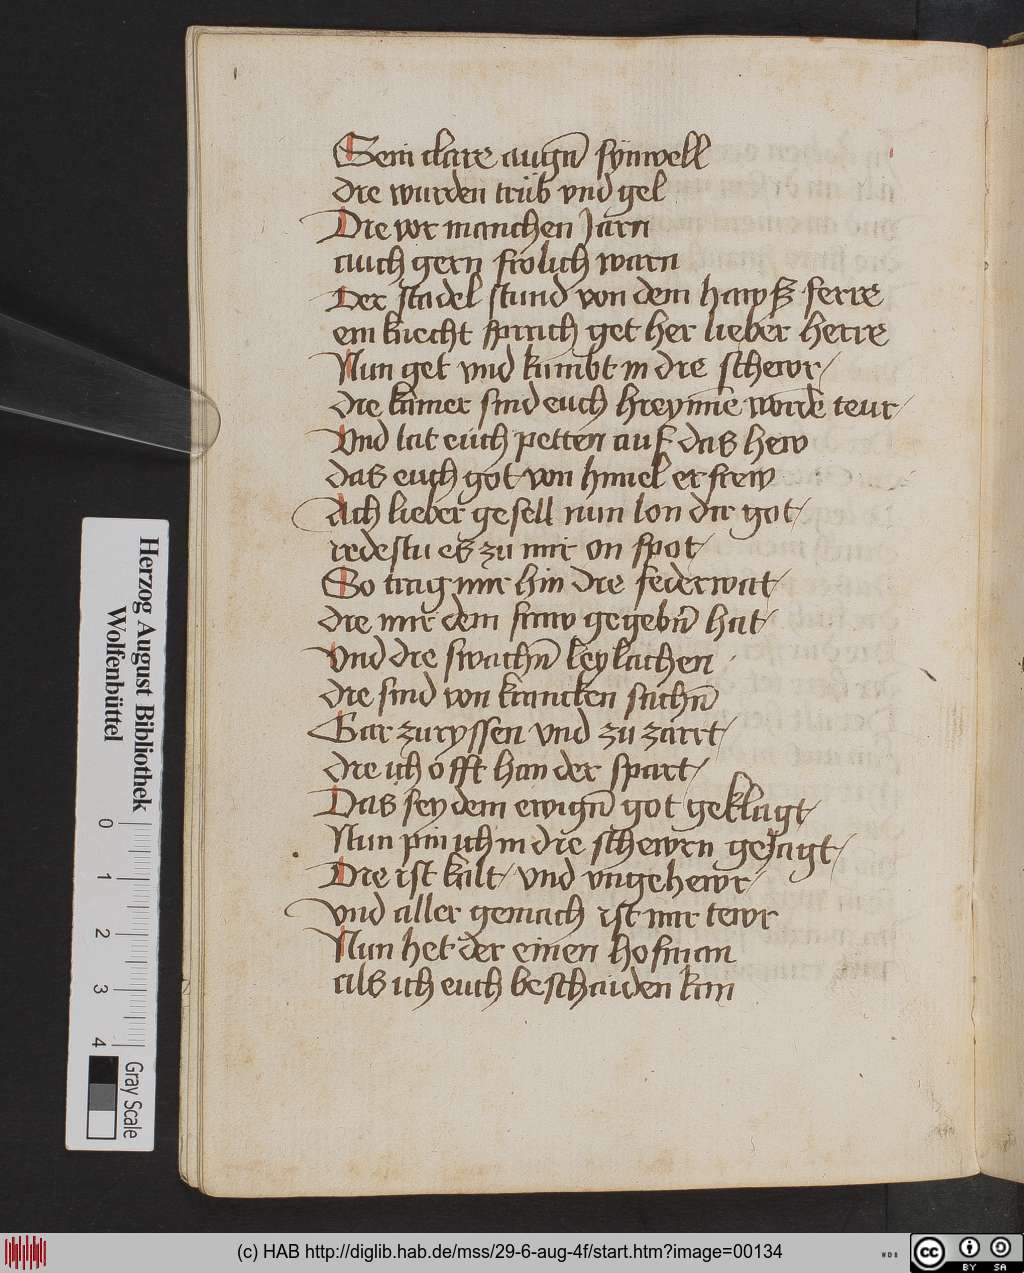 Sein clare augñ synwell
die wurden trüb vnd gel
Die vor manchen Jarn
auch gern frolich warn
Der stadel stund von dem hawsz ferre
ein knecht sprach get her lieber herre
Nun get vnd kumbt in die schewr/
die kamer sind euch hreyinne worde teur/
Vnd lat euch petten auf das hew
das euch got von himel erfrew
Ach lieber gesell nun lon dir got/
redestu es zu mir on spot/
So trag mir hin die federwat/
die mir dem fraw gegebñ hat/
Vnd die swachñ leylachen
die sind von krancken sachñ
Gar zuryssen vnd zu zarrt/
die ich offt han der spart/
Das sey dem ewigñ got geklagt/
Nun pin ich in die schewrn geJagt/
Die ist kalt/ vnd vngehewr/
vnd aller gemach ist mir tewr
Nun het der einen hofman
als ich euch beschaiden kan
Herzog August Bibliothek
Wolfenbüttel
0
1
2
3
4
Gray Scale
(c) HAB http://diglib.hab.de/mss/29-6-aug-4f/start.htm?image=00134
WDB
cc
BY SA